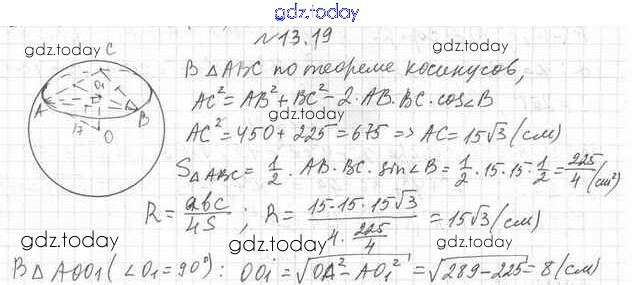 gdz.today
№13.19
gdz.today C gdz.today
В △ABC по теореме косинусов,
AC² = AB² + BC² - 2·AB·BC·cos∠B
gdz.today
O₁
A B
17 O
AC² = 450 + 225 = 675 => AC = 15√3 (см)
S△ABC = 1/2 · AB·BC·sin∠B = 1/2 · 15·15·1/2 = 225/4 (см²)
gdz.today gdz.today
R = abc/4S ; R = 15·15·15√3 / 4·225/4 = 15√3 (см)
gdz.today gdz.today gdz.today
В △AOO1 (∠O₁=90°): OO₁ = √OA² - AO₁² = √289-225 = 8 (см)